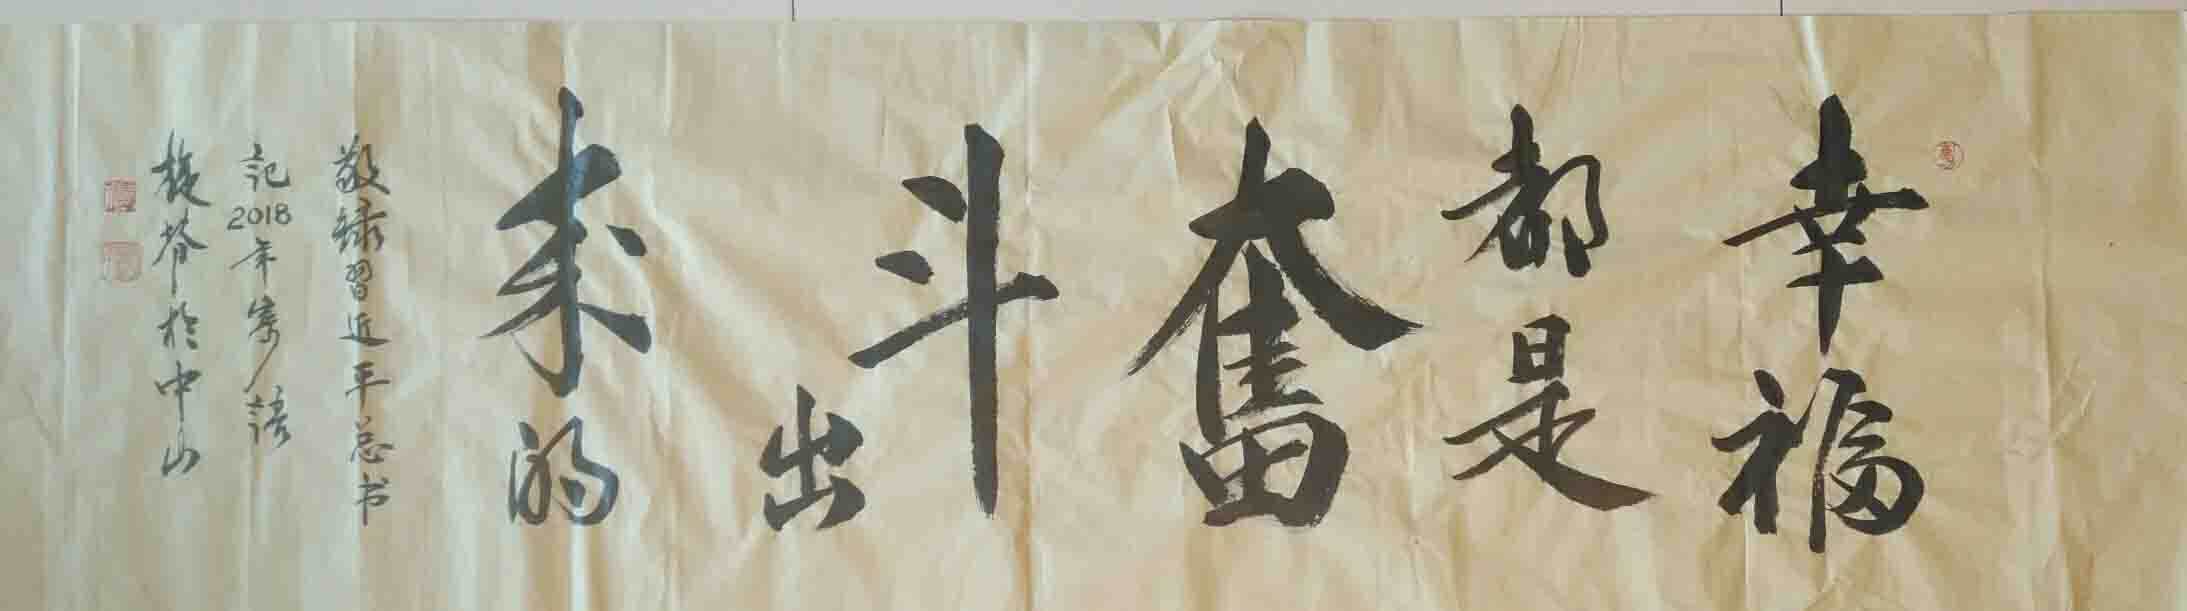 幸福
都是
奮
斗
出
来的
敬録習近平总书
記2018年寄語
於中山